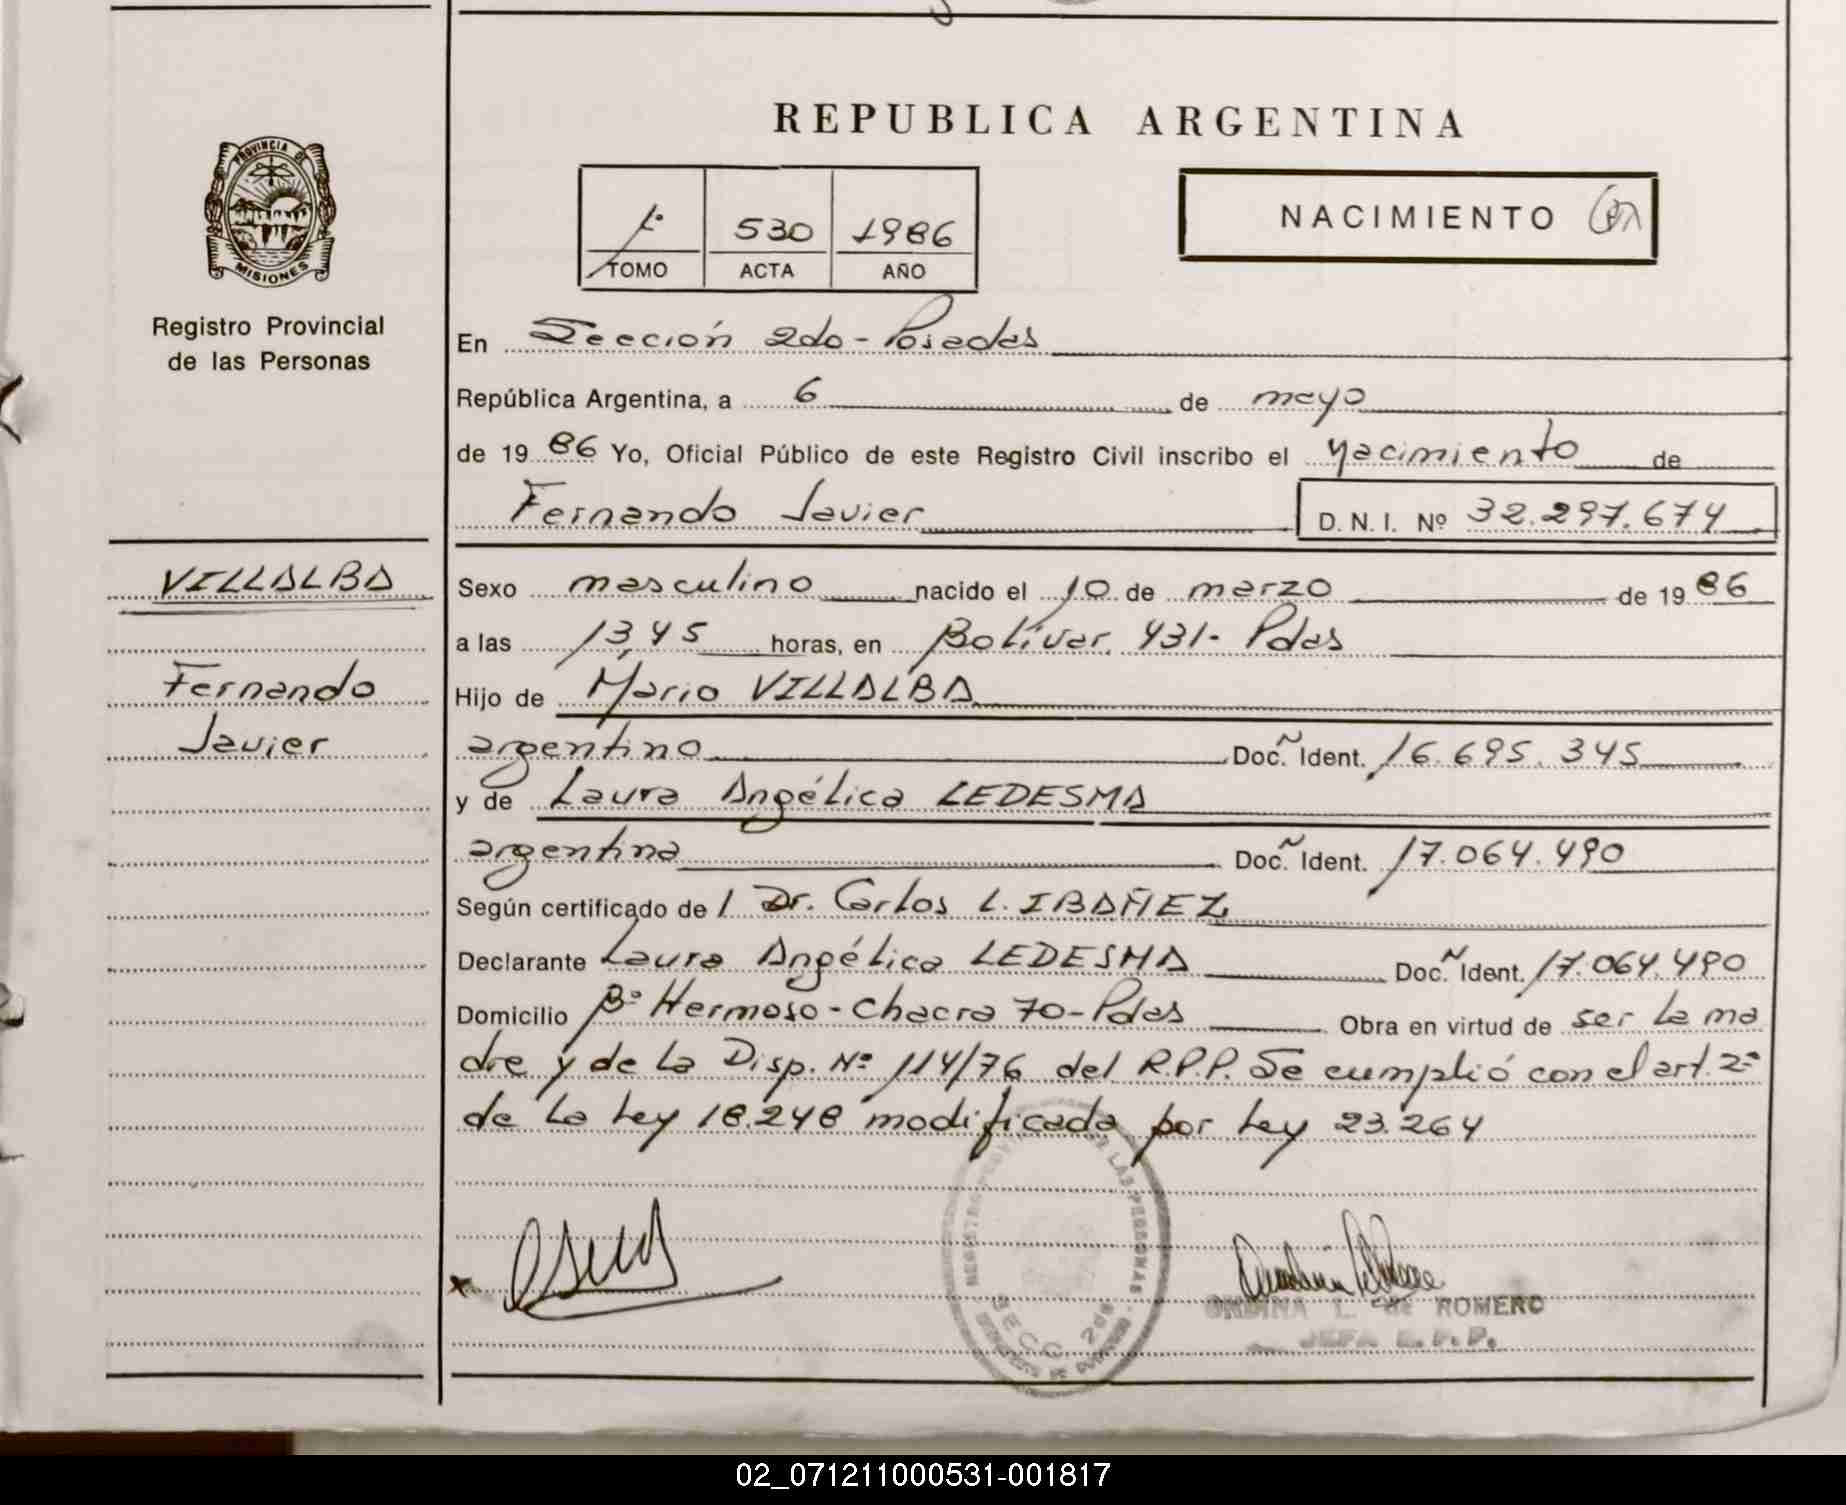 REPUBLICA ARGENTINA
PROVINCIA DE
MISIONES
Registro Provincial
de las Personas
1º 530 1986
TOMO ACTA AÑO
NACIMIENTO
En Sección 2da - Posadas
República Argentina, a 6 de mayo
de 19 86 Yo, Oficial Público de este Registro Civil inscribo el Nacimiento de
Fernando Javier D. N. I. Nº 32.297.674
VILLALBA
Fernando
Javier
Sexo masculino nacido el 10 de marzo de 19 86
a las 13,45 horas, en Bolívar 431 - Pdas
Hijo de Mario VILLALBA
argentino Doc. Ident. 16.695.345
y de Laura Angélica LEDESMA
argentina Doc. Ident. 17.064.490
Según certificado de / Dr. Carlos L. IBAÑEZ
Declarante Laura Angélica LEDESMA Doc. Ident. 17.064.490
Domicilio Bº Hermoso - Chacra 70 - Pdas Obra en virtud de ser la ma
dre y de la Disp. Nº 114/76 del R.P.P. Se cumplió con el art. 2º
de la Ley 18.248 modificada por Ley 23.264
LAS PERSONAS
SECC. 2da
ONDINA L. de ROMERO
JEFA R. P. P.
02_071211000531-001817